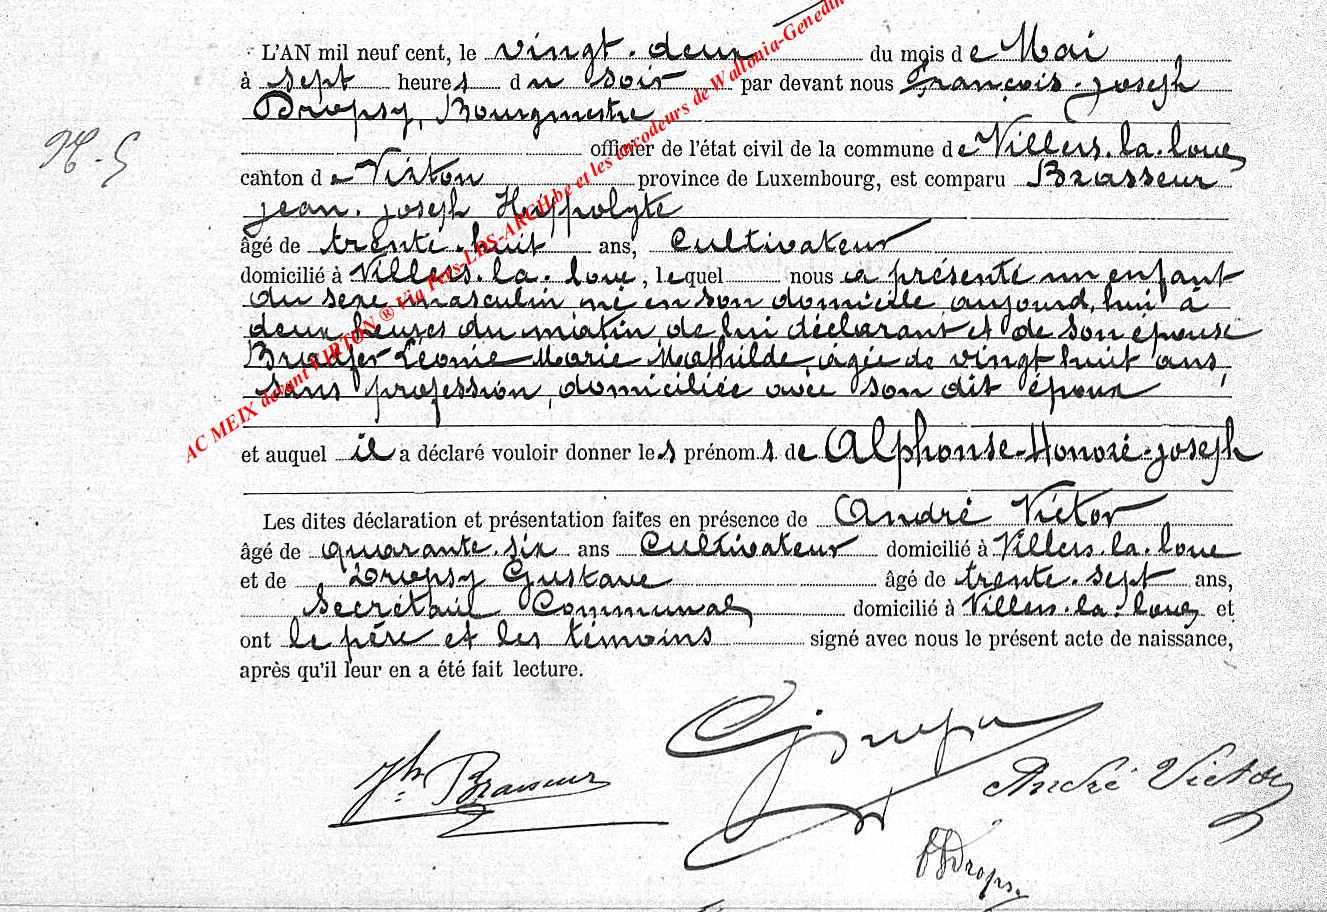 L'AN mil neuf cent, le vingt-deux du mois de Mai
à sept heures du soir par devant nous François-Joseph
Dropsy, Bourgmestre
N. 5
officier de l'état civil de la commune de Villers-la-loue
canton de Virton province de Luxembourg, est comparu Brasseur
Jean-Joseph Hippolyte
âgé de trente-huit ans, Cultivateur
domicilié à Villers-la-loue, lequel nous a présenté un enfant
du sexe masculin né en son domicile aujourd'hui à
deux heures du matin de lui déclarant et de son épouse
Léonie Marie Mathilde âgée de vingt huit ans,
sans profession, domiciliée avec son dit époux
et auquel il a déclaré vouloir donner les prénoms de Alphonse-Honoré-Joseph
Les dites déclaration et présentation faites en présence de André Victor
âgé de quarante-six ans Cultivateur domicilié à Villers-la-loue
et de Dropsy Gustave âgé de trente-sept ans,
Secrétaire Communal domicilié à Villers-la-loue, et
ont le père et les témoins signé avec nous le présent acte de naissance,
après qu'il leur en a été fait lecture.
AC MEIX devant VIRTON ® Via Pers-LDS-ARCH.be et les encodeurs de Wallonia-Genedin
Jh. Brasseur
G Dropsy
André Victor
Dropsy